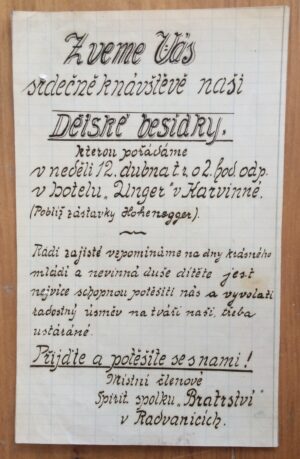 Zveme Vás
srdečně k návštěvě naší
Dětské besídky,
kterou pořádáme
v neděli 12. dubna t.r. o 2. hod. odp.
v hotelu „Unger" v Karvinné.
(Poblíž zastávky Hohenegger).
Rádi zajisté vzpomínáme na dny krásného
mládí a nevinná duše dítěte jest
nejvíce schopnou potěšiti nás a vyvolati
radostný úsměv na tváři naší, třeba
ustárané.
Přijďte a potěšíte se s námi!
Místní členové
Spirit. spolku „Bratrství"
v Radvanicích.